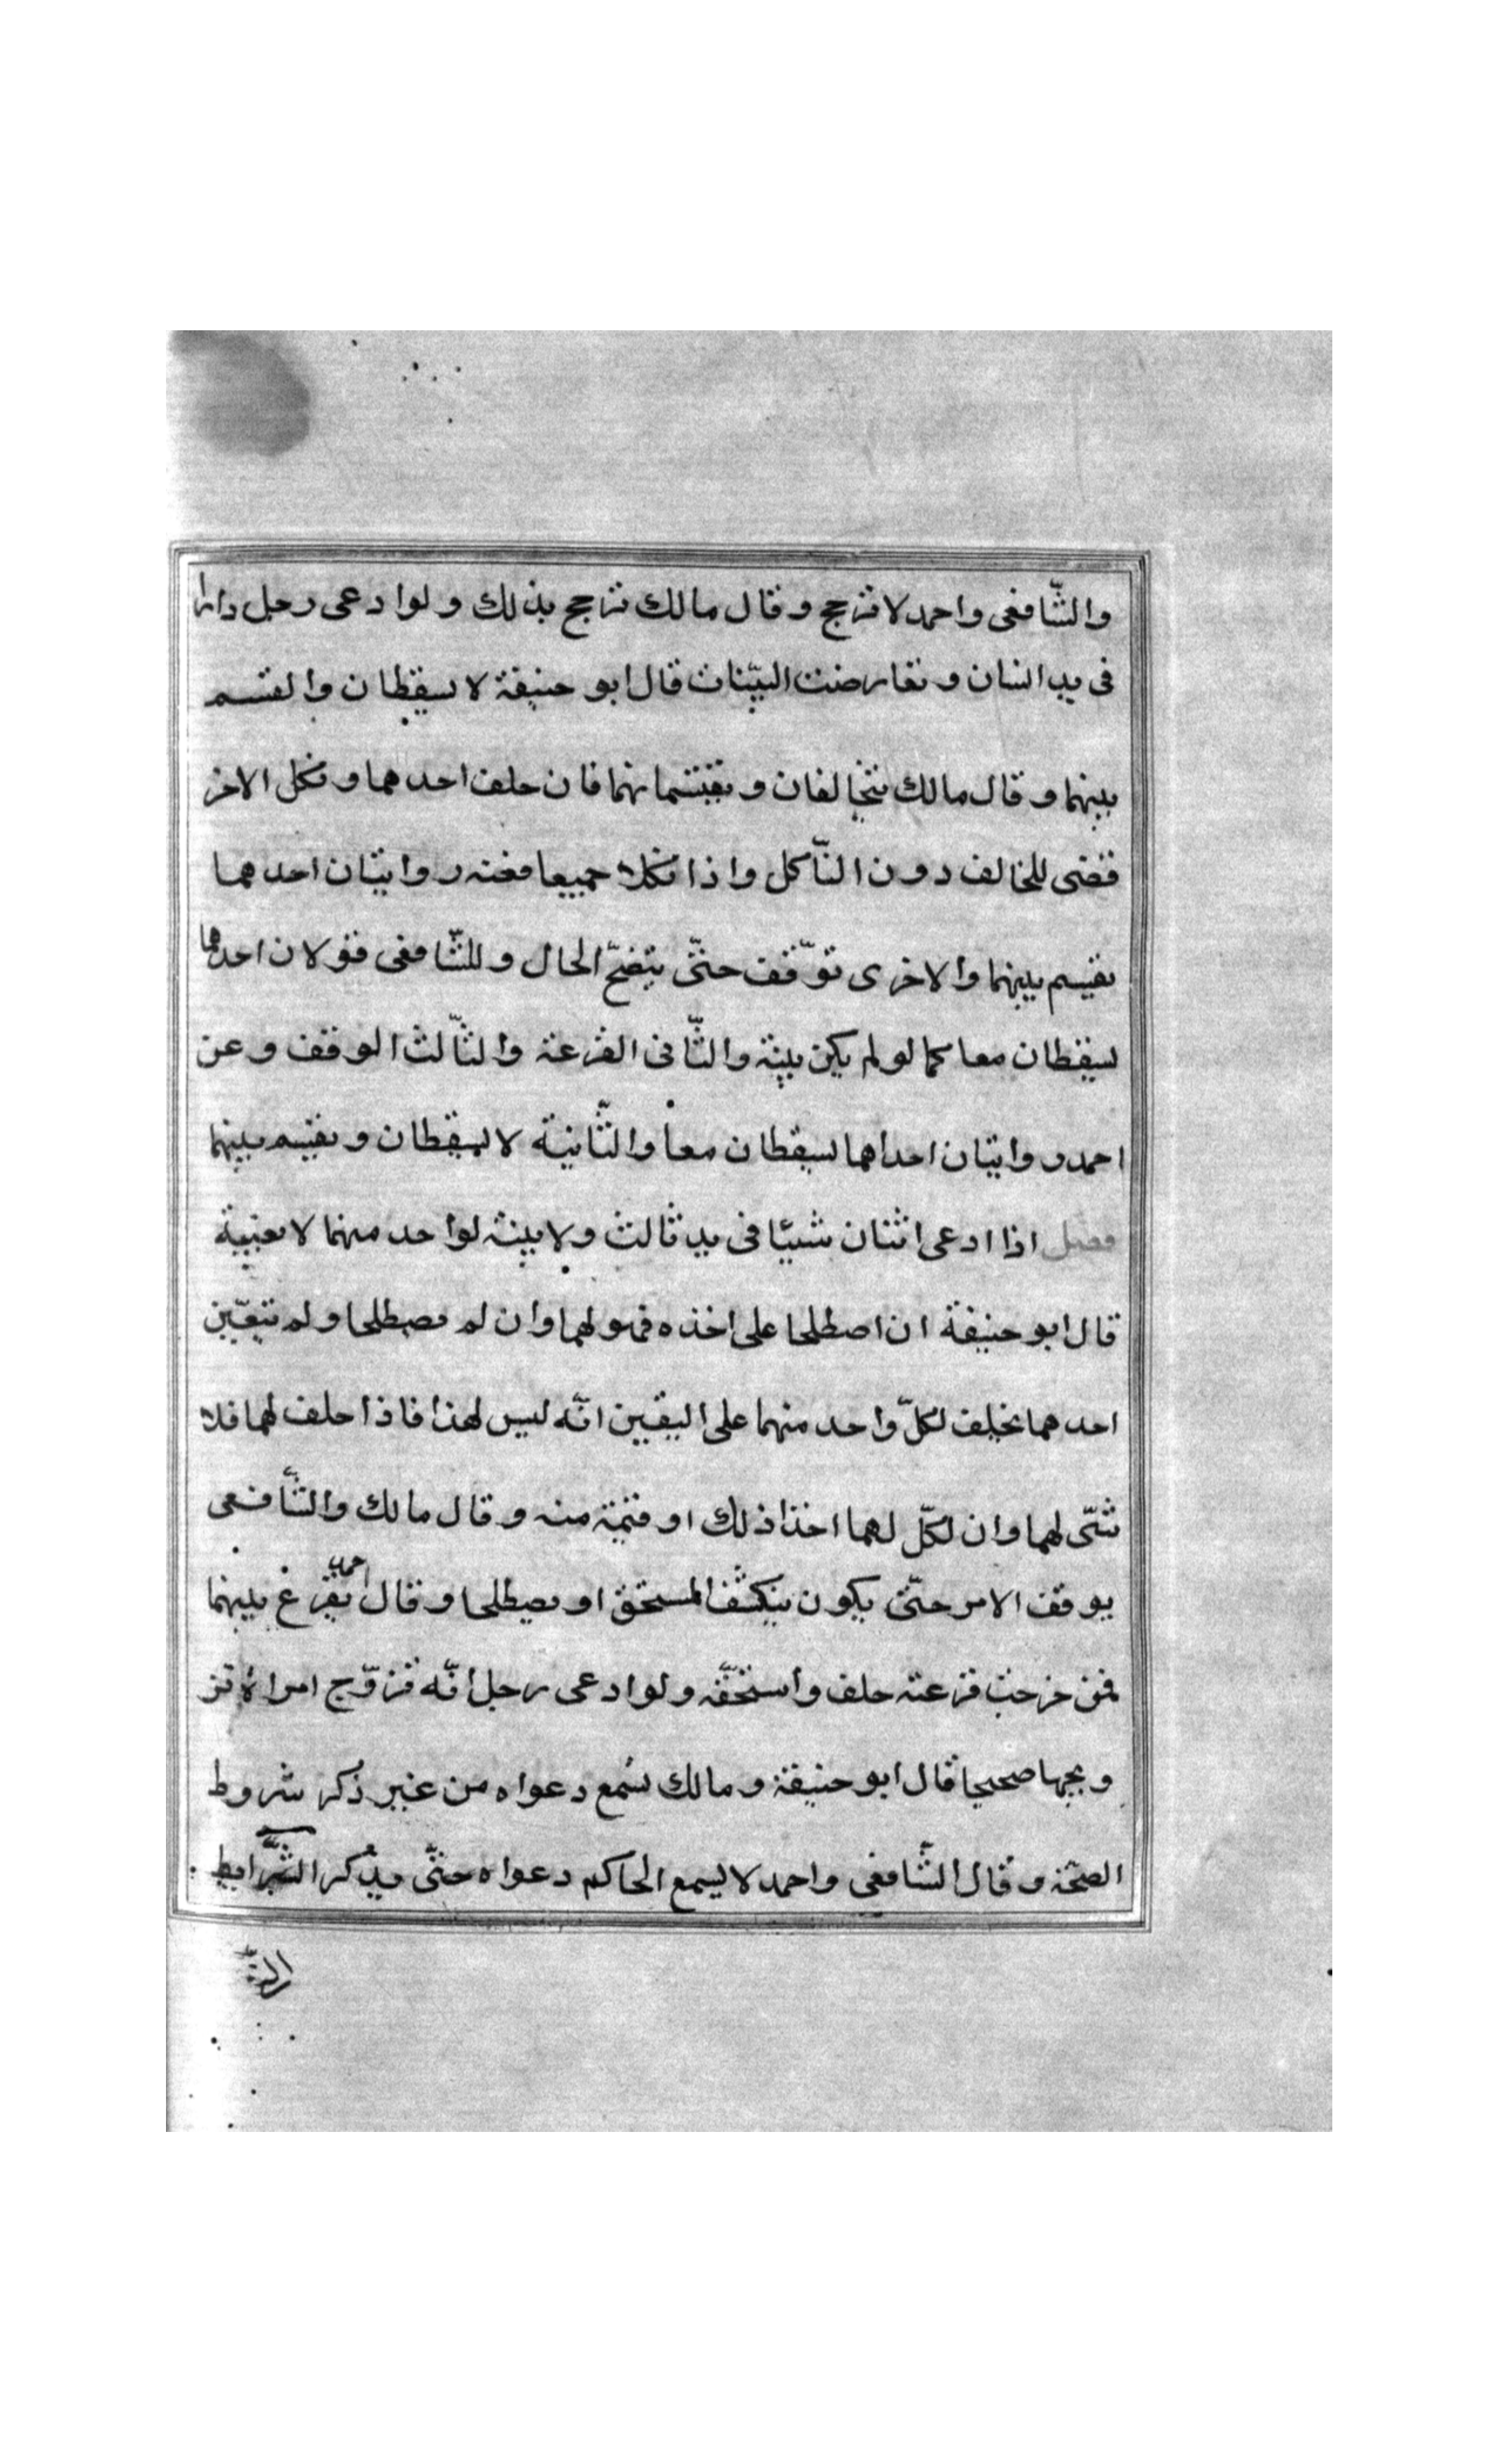 والشّافعى واحمد لا ترجح وقال مالك ترجح بذلك ولو ادعى رجل دارا
فى يد انسان وتعارضت البيّنات قال ابو حنيفة لا يسقطان والقسم
بينهما وقال مالك يتحالفان ويقتسمانهما فان حلف احدهما ونكل الاخر
قضى للحالف دون النّاكل واذا نكلا جميعا فعنه روايتان احدهما
يقسم بينهما والاخرى توقّف حتّى يتضح الحال وللشّافعى قولان احدهما
يسقطان معا كما لو لم يكن بينة والثّانى القرعة والثّالث الوقف وعن
احمد روايتان احداهما يسقطان معا والثّانية لا يسقطان ويقسم بينهما
فصل اذا ادعى اثنان شيئا فى يد ثالث ولا بينة لواحد منهما لا بعينه
قال ابو حنيفة ان اصطلحا على اخذه فهو لهما وان لم يصطلحا ولم يتعيّن
احدهما يحلف لكلّ واحد منهما على اليقين انّه ليس لهذا فاذا حلف لهما فلا
شئ لهما وان نكلّ لهما اخذا ذلك او قيمة منه وقال مالك والشّافعى
يوقف الامر حتّى يكون ينكشف المستحق او يصطلحا وقال احمد يقرع بينهما
فمن خرجت قرعته حلف واستحقّه ولو ادعى رجل انّه تزوّج امراة تز
ويجها صحيحا قال ابو حنيفة ومالك تسمع دعواه من غير ذكر شروط
الصحّة وقال الشّافعى واحمد لا يسمع الحاكم دعواه حتّى يذكر الشّرايط